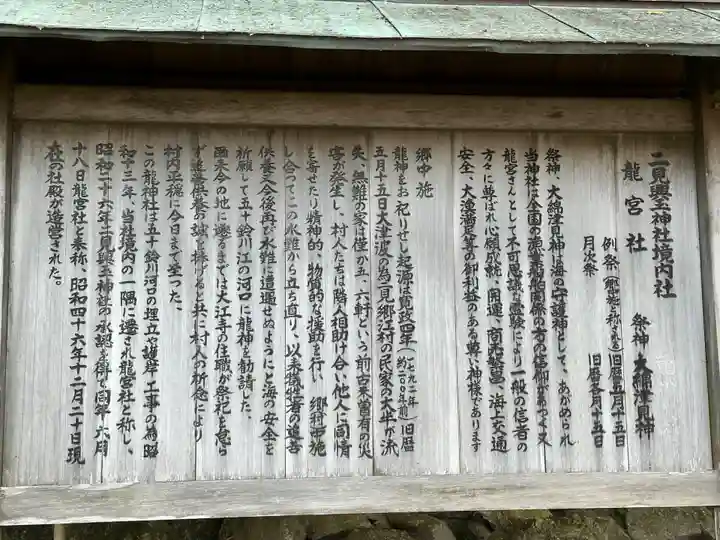 二見興玉神社境内社
龍宮社　祭神　大綿津見神
例祭（郷施と称へる）旧暦五月十五日
月次祭　旧暦毎月十五日
祭神、大綿津見神は海の守護神として、あがめられ
当神社は全国の漁業船舶関係の方の信仰があつく又
龍宮さんとして不可思議な霊験により一般の信者の
方々に尊ばれ心願成就、開運、商売繁昌、海上交通
安全、大漁満足等の御利益のある尊い神様であります
郷中施
龍神をお祀りせし起源は寛政四年（一七九二年 約二〇〇年前）旧暦
五月十五日大津波の為二見郷江村の民家の大半が流
失、無難の家は僅か五、六軒という前古未曽有の災
害が発生し、村人たちは隣人相助け合い、他人に同情
を寄せたり精神的、物質的な援助を行い、郷利中施
し合ってこの水難から立ち直り、以来犠牲者の追善
供養と今後再び水難に遭遇せぬようにと海の安全を
祈願して五十鈴川江の河口に龍神を勧請した。
爾来今の地に遷るまでは大江寺の住職が祭祀を怠ら
ず追善供養の誠を捧げると共に村人の祈念により
村内平穏に今日まで至った、
この龍神社は五十鈴川河口の埋立や護岸工事の為昭
和十三年、当社境内の一隅に遷され龍宮社と称し、
昭和二十六年二見興玉神社の承認を得て同年六月
十八日龍宮社と奉称、昭和四十六年十二月二十日現
在の社殿が造営された。